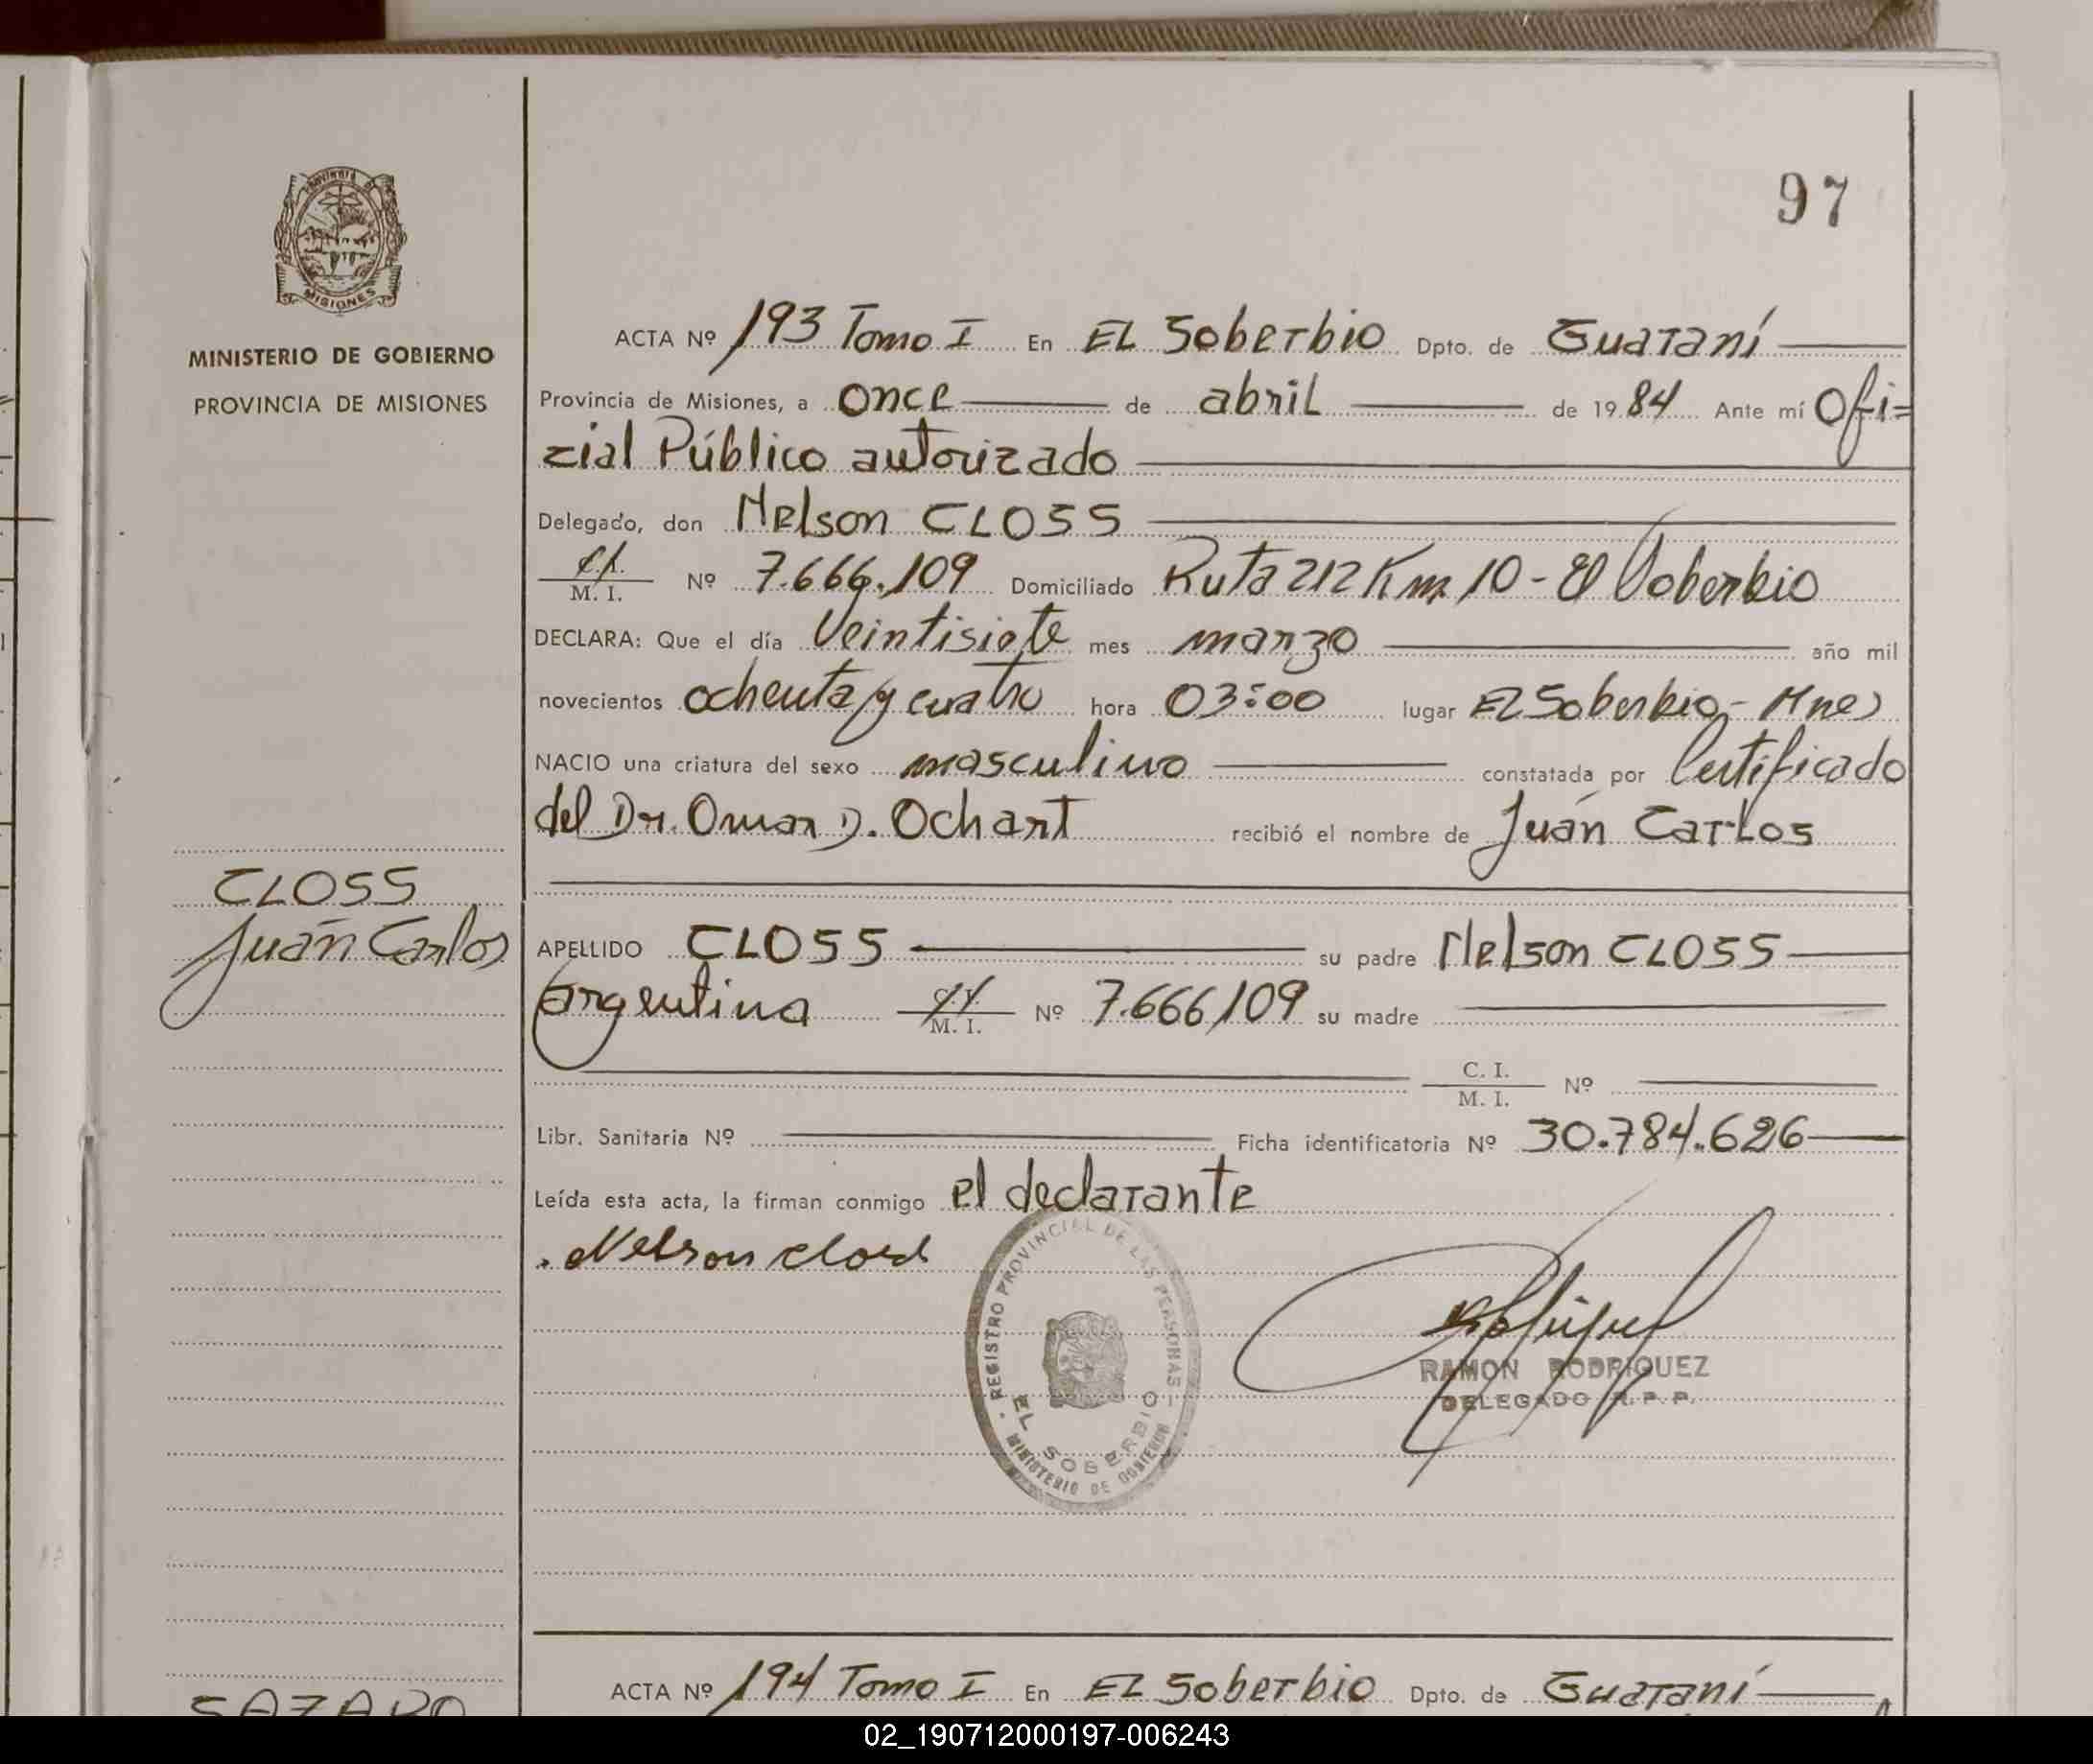 97
MINISTERIO DE GOBIERNO
PROVINCIA DE MISIONES
MISIONES
ACTA Nº 193 Tomo I En EL Soberbio Dpto. de Guaraní
Provincia de Misiones, a once de abril de 1984 Ante mí Ofi=
cial Público autorizado
Delegado, don Nelson CLOSS
C.I. M. I. Nº 7.666.109 Domiciliado Ruta 212 Km 10 - El Soberbio
DECLARA: Que el día Veintisiete mes marzo año mil
novecientos ochenta y cuatro hora 03:00 lugar El Soberbio - Mnes
NACIO una criatura del sexo masculino constatada por Certificado
del Dr. Omar D. Ochart recibió el nombre de Juan Carlos
CLOSS
Juan Carlos
APELLIDO CLOSS su padre Nelson CLOSS
argentina C.I. M. I. Nº 7.666.109 su madre
C. I. M. I. Nº
Libr. Sanitaria Nº Ficha identificatoria Nº 30.784.626
Leída esta acta, la firman conmigo el declarante
Nelson Closs
REGISTRO PROVINCIAL DE LAS PERSONAS
EL SOBERBIO
MINISTERIO DE GOBIERNO
RAMON RODRIGUEZ
DELEGADO R. P. P.
ACTA Nº 194 Tomo I En EL Soberbio Dpto. de Guaraní
02_190712000197-006243